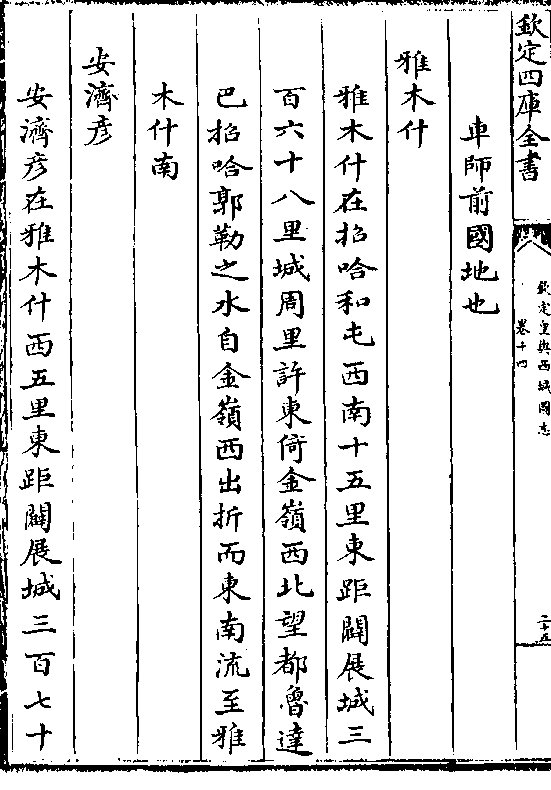 欽定四庫全書
欽定皇輿西域圖志
卷十四
二十五
車師前國地也
雅木什
雅木什在招哈和屯西南十五里東距闢展城三
百六十八里城周里許東倚金嶺西北望都魯達
巴招哈郭勒之水自金嶺西出折而東南流至雅
木什南
安濟彥
安濟彥在雅木什西五里東距闢展城三百七十